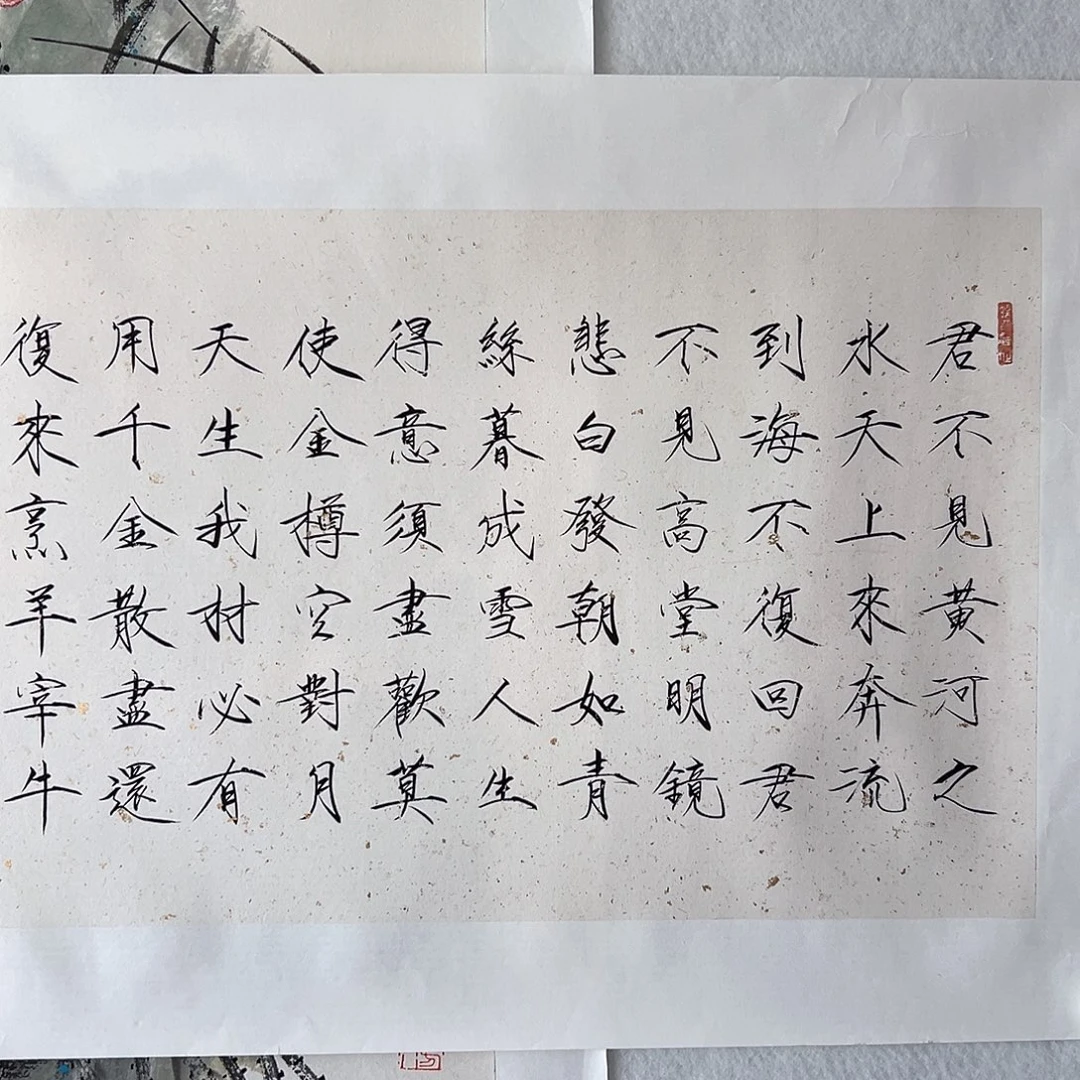 君不見黃河之
水天上來奔流
到海不復回君
不見高堂明鏡
悲白發朝如青
絲暮成雪人生
得意須盡歡莫
使金樽空對月
天生我材必有
用千金散盡還
復來烹羊宰牛